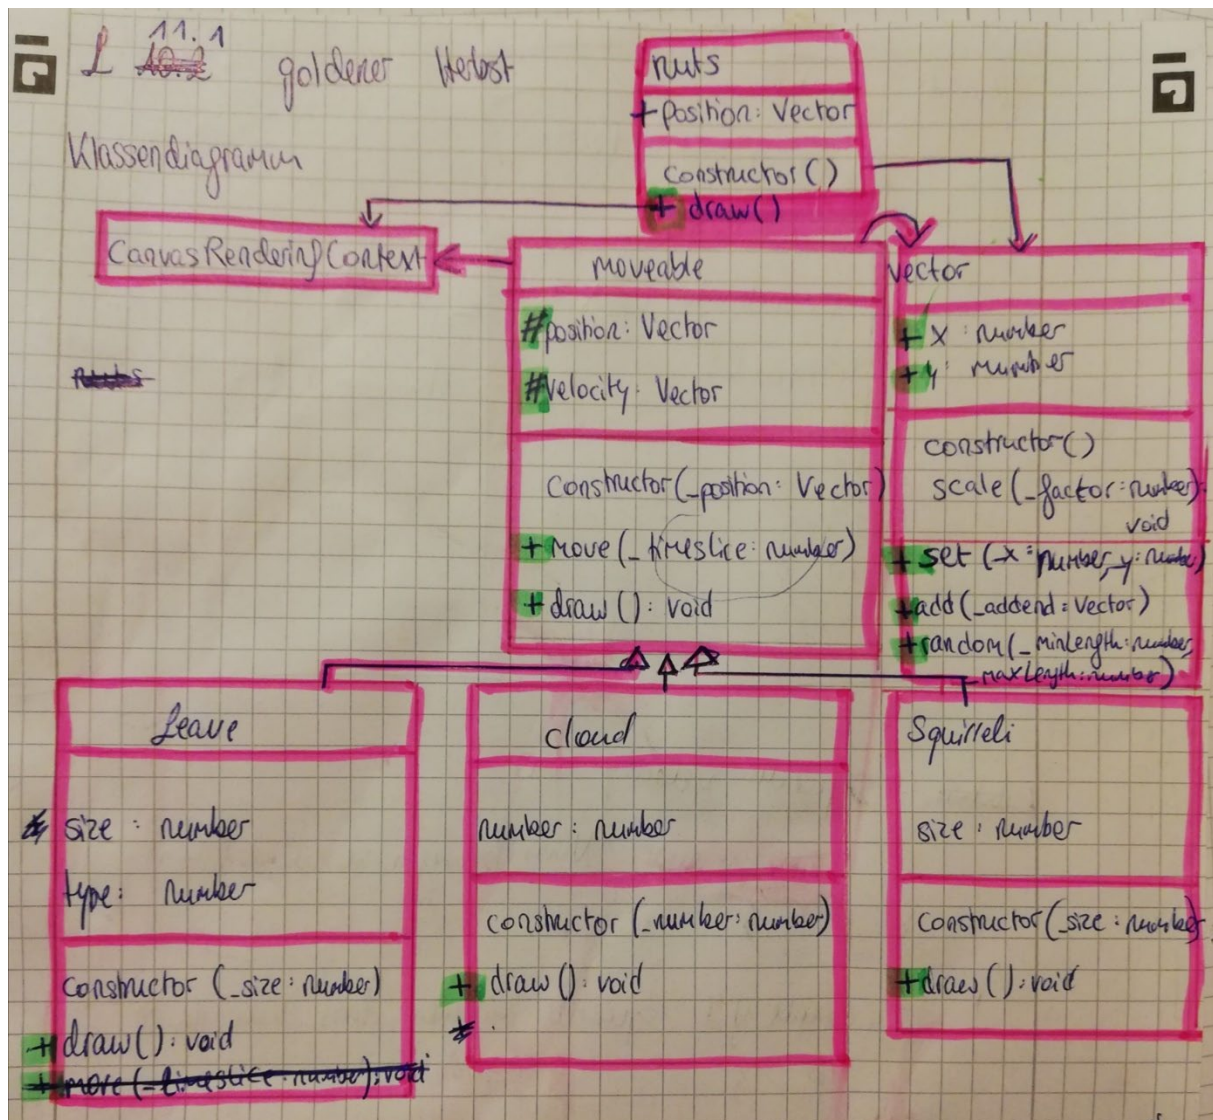 L 11.1
10.2
goldener Herbst
Klassendiagramm
nuts
+ position: Vector
constructor()
+ draw()
CanvasRenderingContext
moveable
#position: Vector
#velocity: Vector
constructor(_position: Vector)
+ move(_timeslice: number)
+ draw(): void
vector
+ x : number
+ y : number
constructor()
scale(_factor: number):
void
+ set (_x: number, _y: number)
+ add(_addend: Vector)
+ random(_minLength: number,
_maxLength: number)
nuts
Leave
size : number
type: number
constructor (_size: number)
+ draw(): void
+ move (_timeslice: number): void
cloud
number: number
constructor (_number: number)
+ draw(): void
Squirreli
size: number
constructor(_size: number)
+ draw(): void